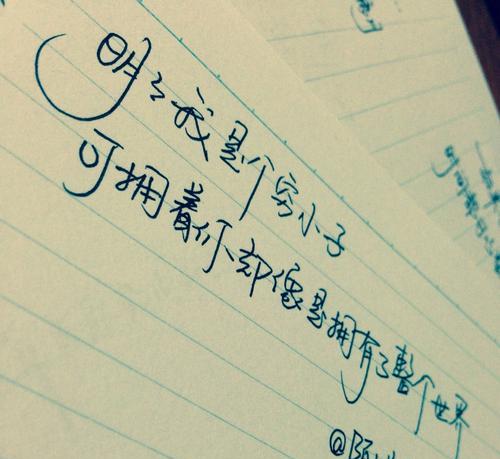 明々我是个穷小子
可拥着你却像是拥有了整个世界
@陌